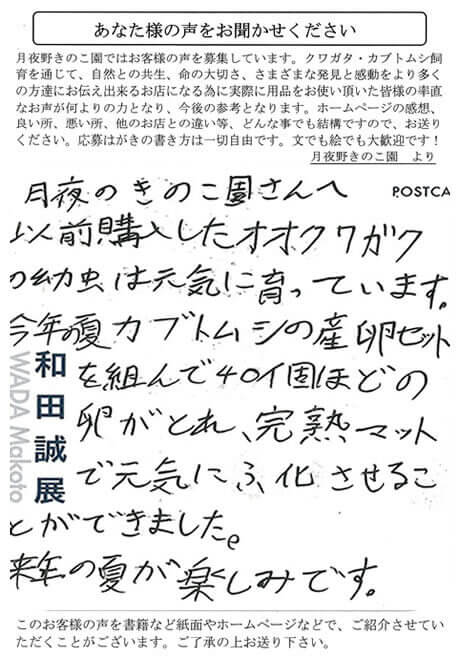 あなた様の声をお聞かせください
月夜野きのこ園ではお客様の声を募集しています。クワガタ・カブトムシ飼
育を通じて、自然との共生、命の大切さ、さまざまな発見と感動をより多く
の方達にお伝え出来るお店になる為に実際に用品をお使い頂いた皆様の率直
なお声が何よりの力となり、今後の参考となります。ホームページの感想、
良い所、悪い所、他のお店との違い等、どんな事でも結構ですので、お送り
ください。応募はがきの書き方は一切自由です。文でも絵でも大歓迎です！
月夜野きのこ園　より
月夜のきのこ園さんへ
POSTCA
以前購入したオオクワガタ
の幼虫は元気に育っています。
今年の夏カブトムシの産卵セット
を組んで40個ほどの
卵がとれ、完熟マット
で元気にふ化させるこ
とができました。
来年の夏が楽しみです。
和田誠展
WADA Makoto
このお客様の声を書籍など紙面やホームページなどで、ご紹介させてい
ただくことがございます。ご了承の上お送り下さい。